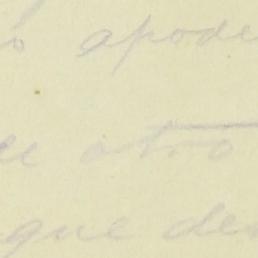 apode
otro
que des